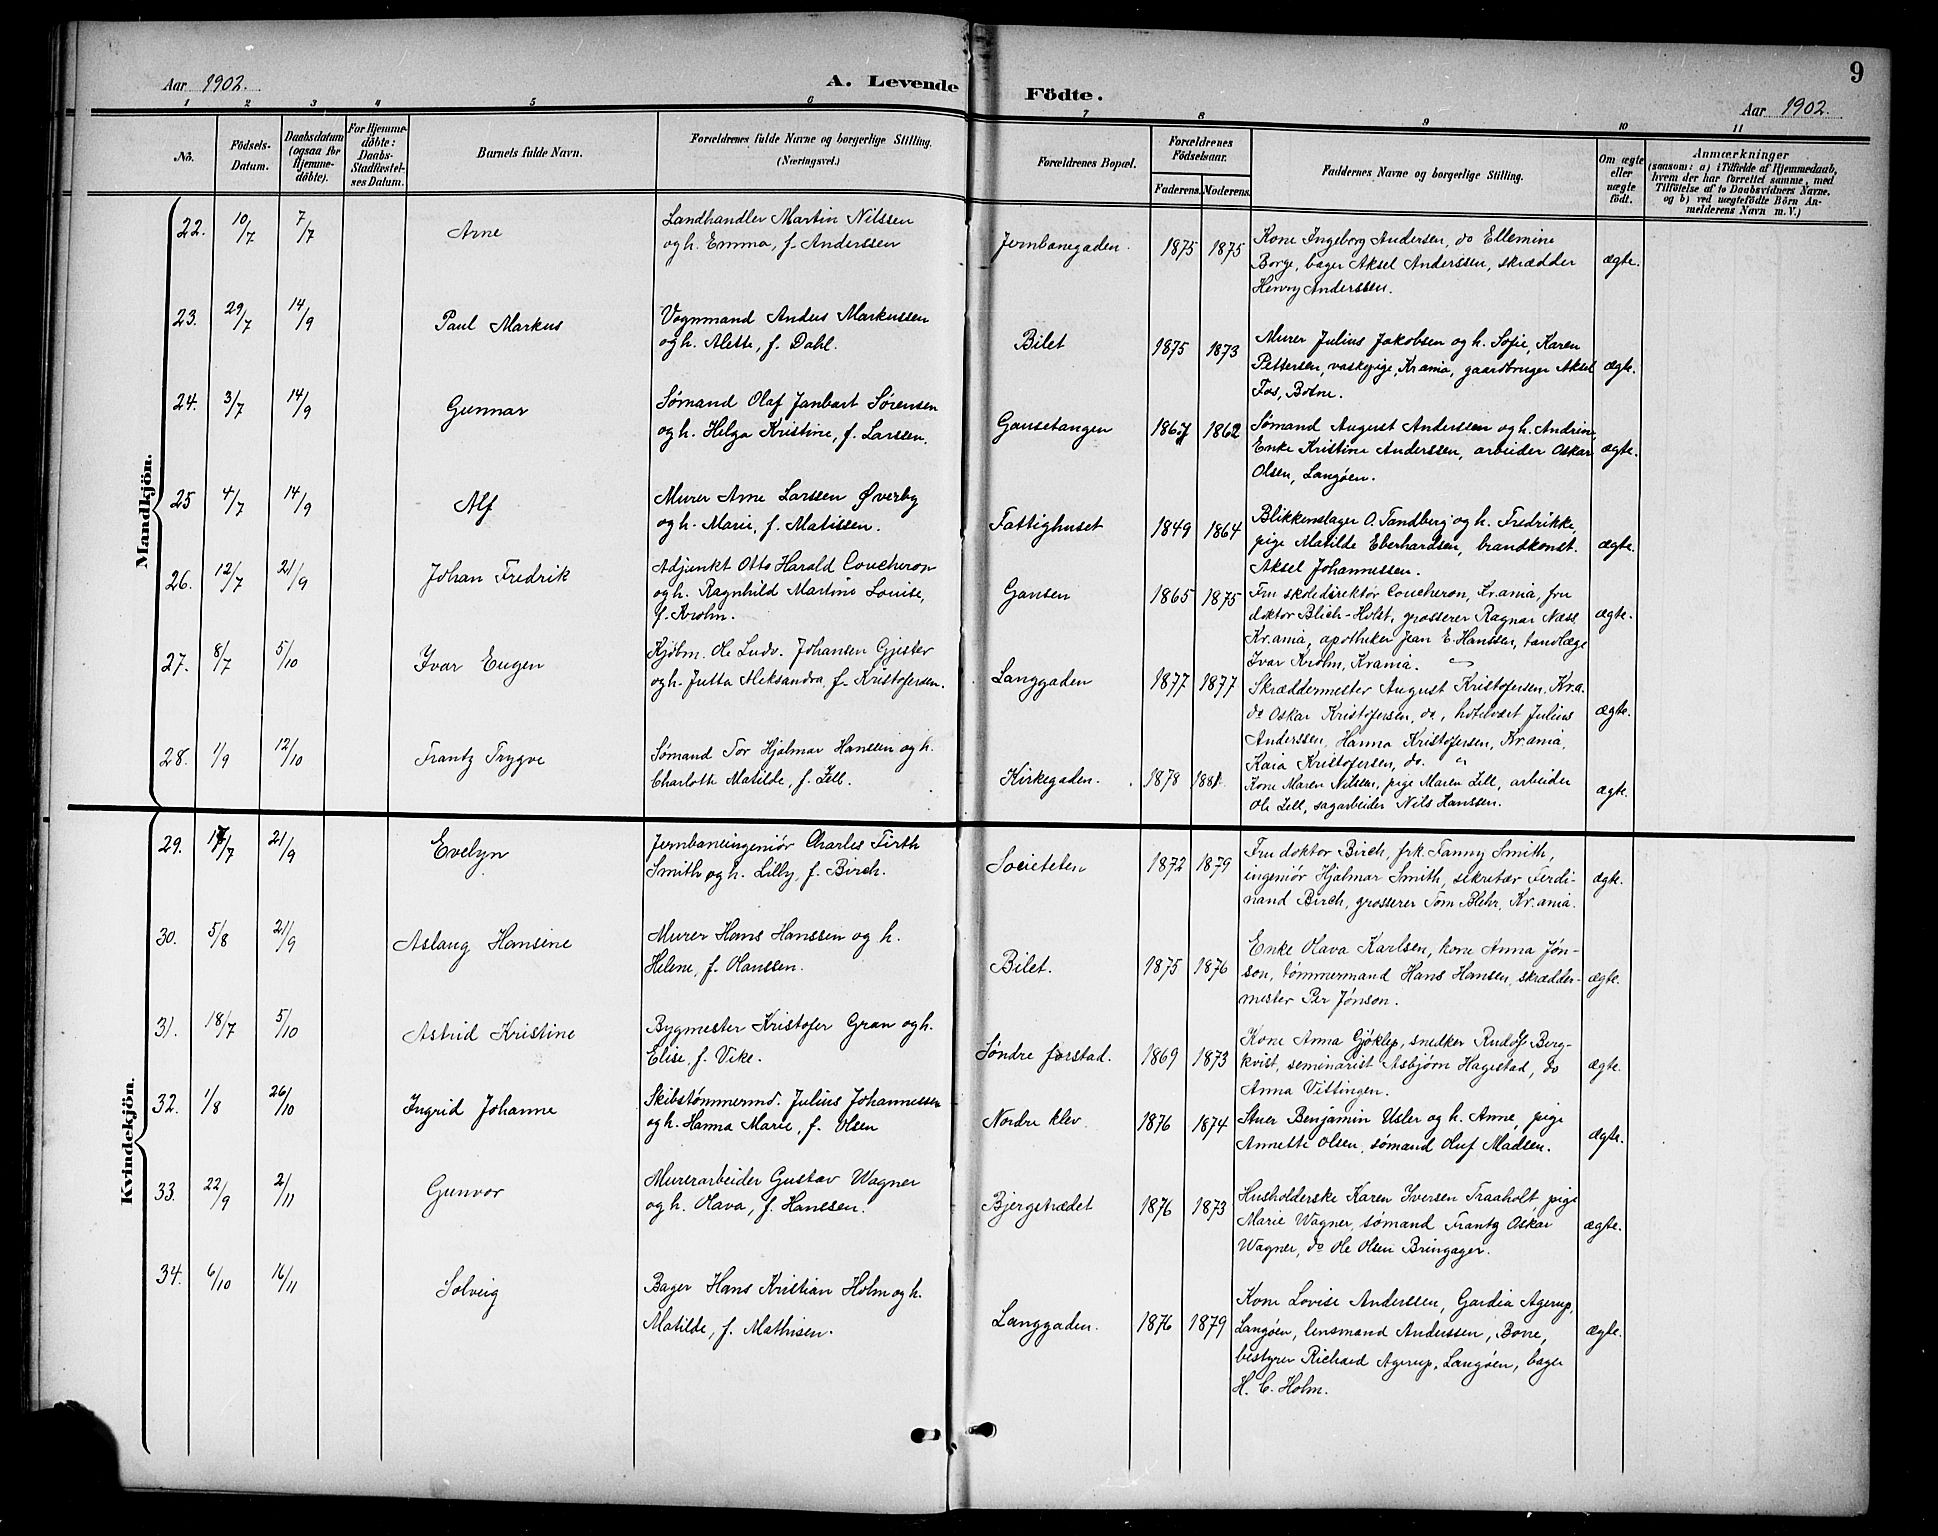 Aar 1902.
A. Levende Födte.
9
Aar 1902.
1 2 3 4 5 6 7 8 9 10 11
No.
Födsels-Datum.
Daabsdatum (ogsaa for Hjemme-döbte).
For Hjemme-döbte: Daabs-Stadfæstel-ses Datum.
Barnets fulde Navn.
Forældrenes fulde Navne og borgerlige Stilling.
(Næringsvei.)
Forældrenes Bopæl.
Forældrenes Födselsaar.
Faderens. Moderens.
Faddernes Navne og borgerlige Stilling.
Om ægte eller uægte födt.
Anmærkninger
(saasom: a) i Tilfælde af Hjemmedaab, hvem der har forrettet samme, med Tilföielse af to Daabsvidners Navne, og b) ved uægtefödte Börn An-melderens Navn m. V.)
Mandkjön.
22. 10/7 7/7 Arne
Landhandler Martin Nilssen
og h. Emma, f. Anderssen
Jernbanegaden. 1875 1875
Kone Ingeborg Andersen, do Ellemine
Borge, bager Aksel Anderssen, skrædder
Henry Anderssen.
ægte.
23. 29/7 14/9 Paul Markus
Vognmand Anders Markussen
og h. Alette, f. Dahl.
Bilet 1875 1873
Murer Julius Jakobsen og h. Sofie, Karen
Pettersen, vaskepige, Kr.ania, gaardbruger Aksel
Fos, Botne.
ægte.
24. 3/7 14/9 Gunnar
Sømand Olaf Janbart Sørensen
og h. Helga Kristine, f. Larssen.
Gausetangen 1867 1862
Sømand August Anderssen og h. Andrine,
Enke Kristine Anderssen, arbeider Oskar
Olsen, Langøen.
ægte.
25 4/7 14/9 Alf
Murer Arne Larssen Øverby
og h. Marie, f. Matissen.
Fattighuset 1849 1864
Blikkenslager O. Tandberg og h. Fredrikke,
pige Matilde Eberhardsen, brandkonst.
Aksel Johannessen.
ægte.
26. 12/7 21/9 Johan Fredrik
Adjunkt Otto Harald Coucheron
og h. Ragnhild Martine Louise,
f. Krohn.
Gausen 1865 1875
Fru skoledirektør Coucheron, Kr.ania, fru
doktor Blich-Holst, grosserer Ragnar Næss,
Kr.ania, apotheker Jean E. Hanssen, tandlæge
Ivar Krohn, Krania.
ægte.
27. 8/7 5/10 Ivar Eugen
Kjøbm. Ole Ludv. Johansen Gjester
og h. Jutta Aleksandra, f. Kristofersen.
Langgaden 1877 1877
Skræddermester August Kristofersen, Kr.a.
do Oskar Kristofersen, do, hotelvært Julius
Anderssen, Hanna Kristofersen, Kr.ania,
Kaia Kristofersen, do. "
ægte.
28. 1/9 12/10 Frantz Trygve
Sømand Tor Hjalmar Hanssen og h.
Charlotte Matilde, f. Lell.
Kirkegaden. 1878 1881.
Kone Maren Nilsen, pige Maren Lell, arbeider
Ole Lell, sagarbeider Nils Hanssen.
ægte.
Kvindekjön.
29. 17/7 21/9 Evelyn
Jernbaneingeniør Charles Firth
Smith og h. Lilly, f. Birch.
Societeten 1872 1879
Fru doktor Birch, frk. Fanny Smith,
ingeniør Hjalmar Smith, sekretær Ferdi-
nand Birch, grosserer Tom Blehr, Kr.ania.
ægte.
30. 5/8 21/9 Aslaug Hansine
Murer Hans Hanssen og h.
Helene, f. Hanssen.
Bilet. 1875 1876
Enke Olava Karlsen, kone Anna Jøn-
son, tømmermand Hans Hansen, skrædder-
mester Per Jønson.
ægte.
31. 18/7 5/10 Astrid Kristine
Bygmester Kristofer Gran og h.
Elise, f. Vike.
Søndre forstad. 1869 1873
Kone Anna Gjøklep, snedker Rudolf Berg-
kvist, seminarist Asbjørn Hagestad, do
Anna Vittingen.
ægte.
32. 1/8 26/10 Ingrid Johanne
Skibstømmermd. Julius Johannessen
og h. Hanna Marie, f. Olsen
Nordre klev. 1876 1874
Stuer Benjamin Usler og h. Anne, pige
Annette Olsen, sømand Oluf Madsen.
ægte.
33. 22/9 2/11 Gunvor
Murerarbeider Gustav Wagner
og h. Olava, f. Hanssen.
Bjergstrædet 1876 1873
Husholderske Karen Iversen Traaholt, pige
Marie Wagner, sømand Frantz Oskar
Wagner, do Ole Olsen Bringager.
ægte.
34. 6/10 16/11 Solveig
Bager Hans Kristian Holm og h.
Matilde, f. Mathisen.
Langgaden. 1876 1879
Kone Lovise Anderssen, Gardia Agerup,
Langøen, lensmand Anderssen, Borre,
bestyrer Richard Agerup, Langøen, bager
H. C. Holm.
ægte.